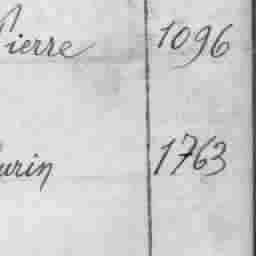 Pierre 1096
urin 1763